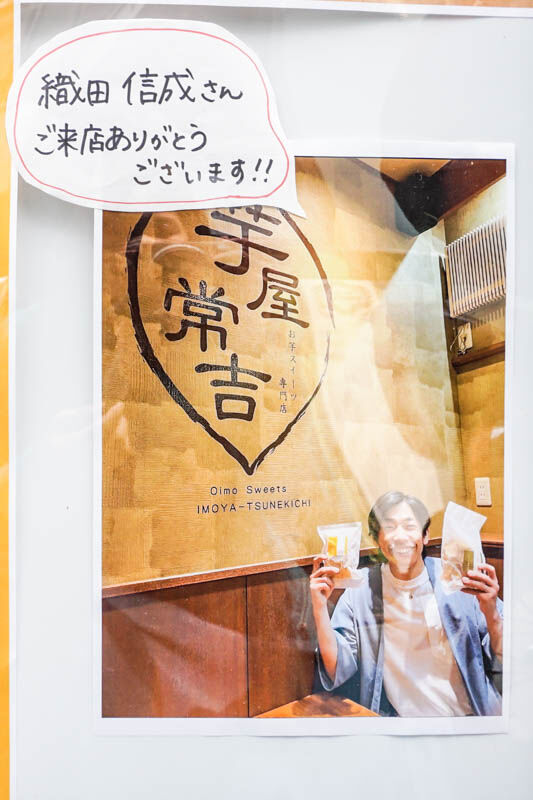 織田 信成さん
ご来店ありがとう
ございます!!
芋屋
常吉
お芋スイーツ
専門店
Oimo Sweets
IMOYA-TSUNEKICHI